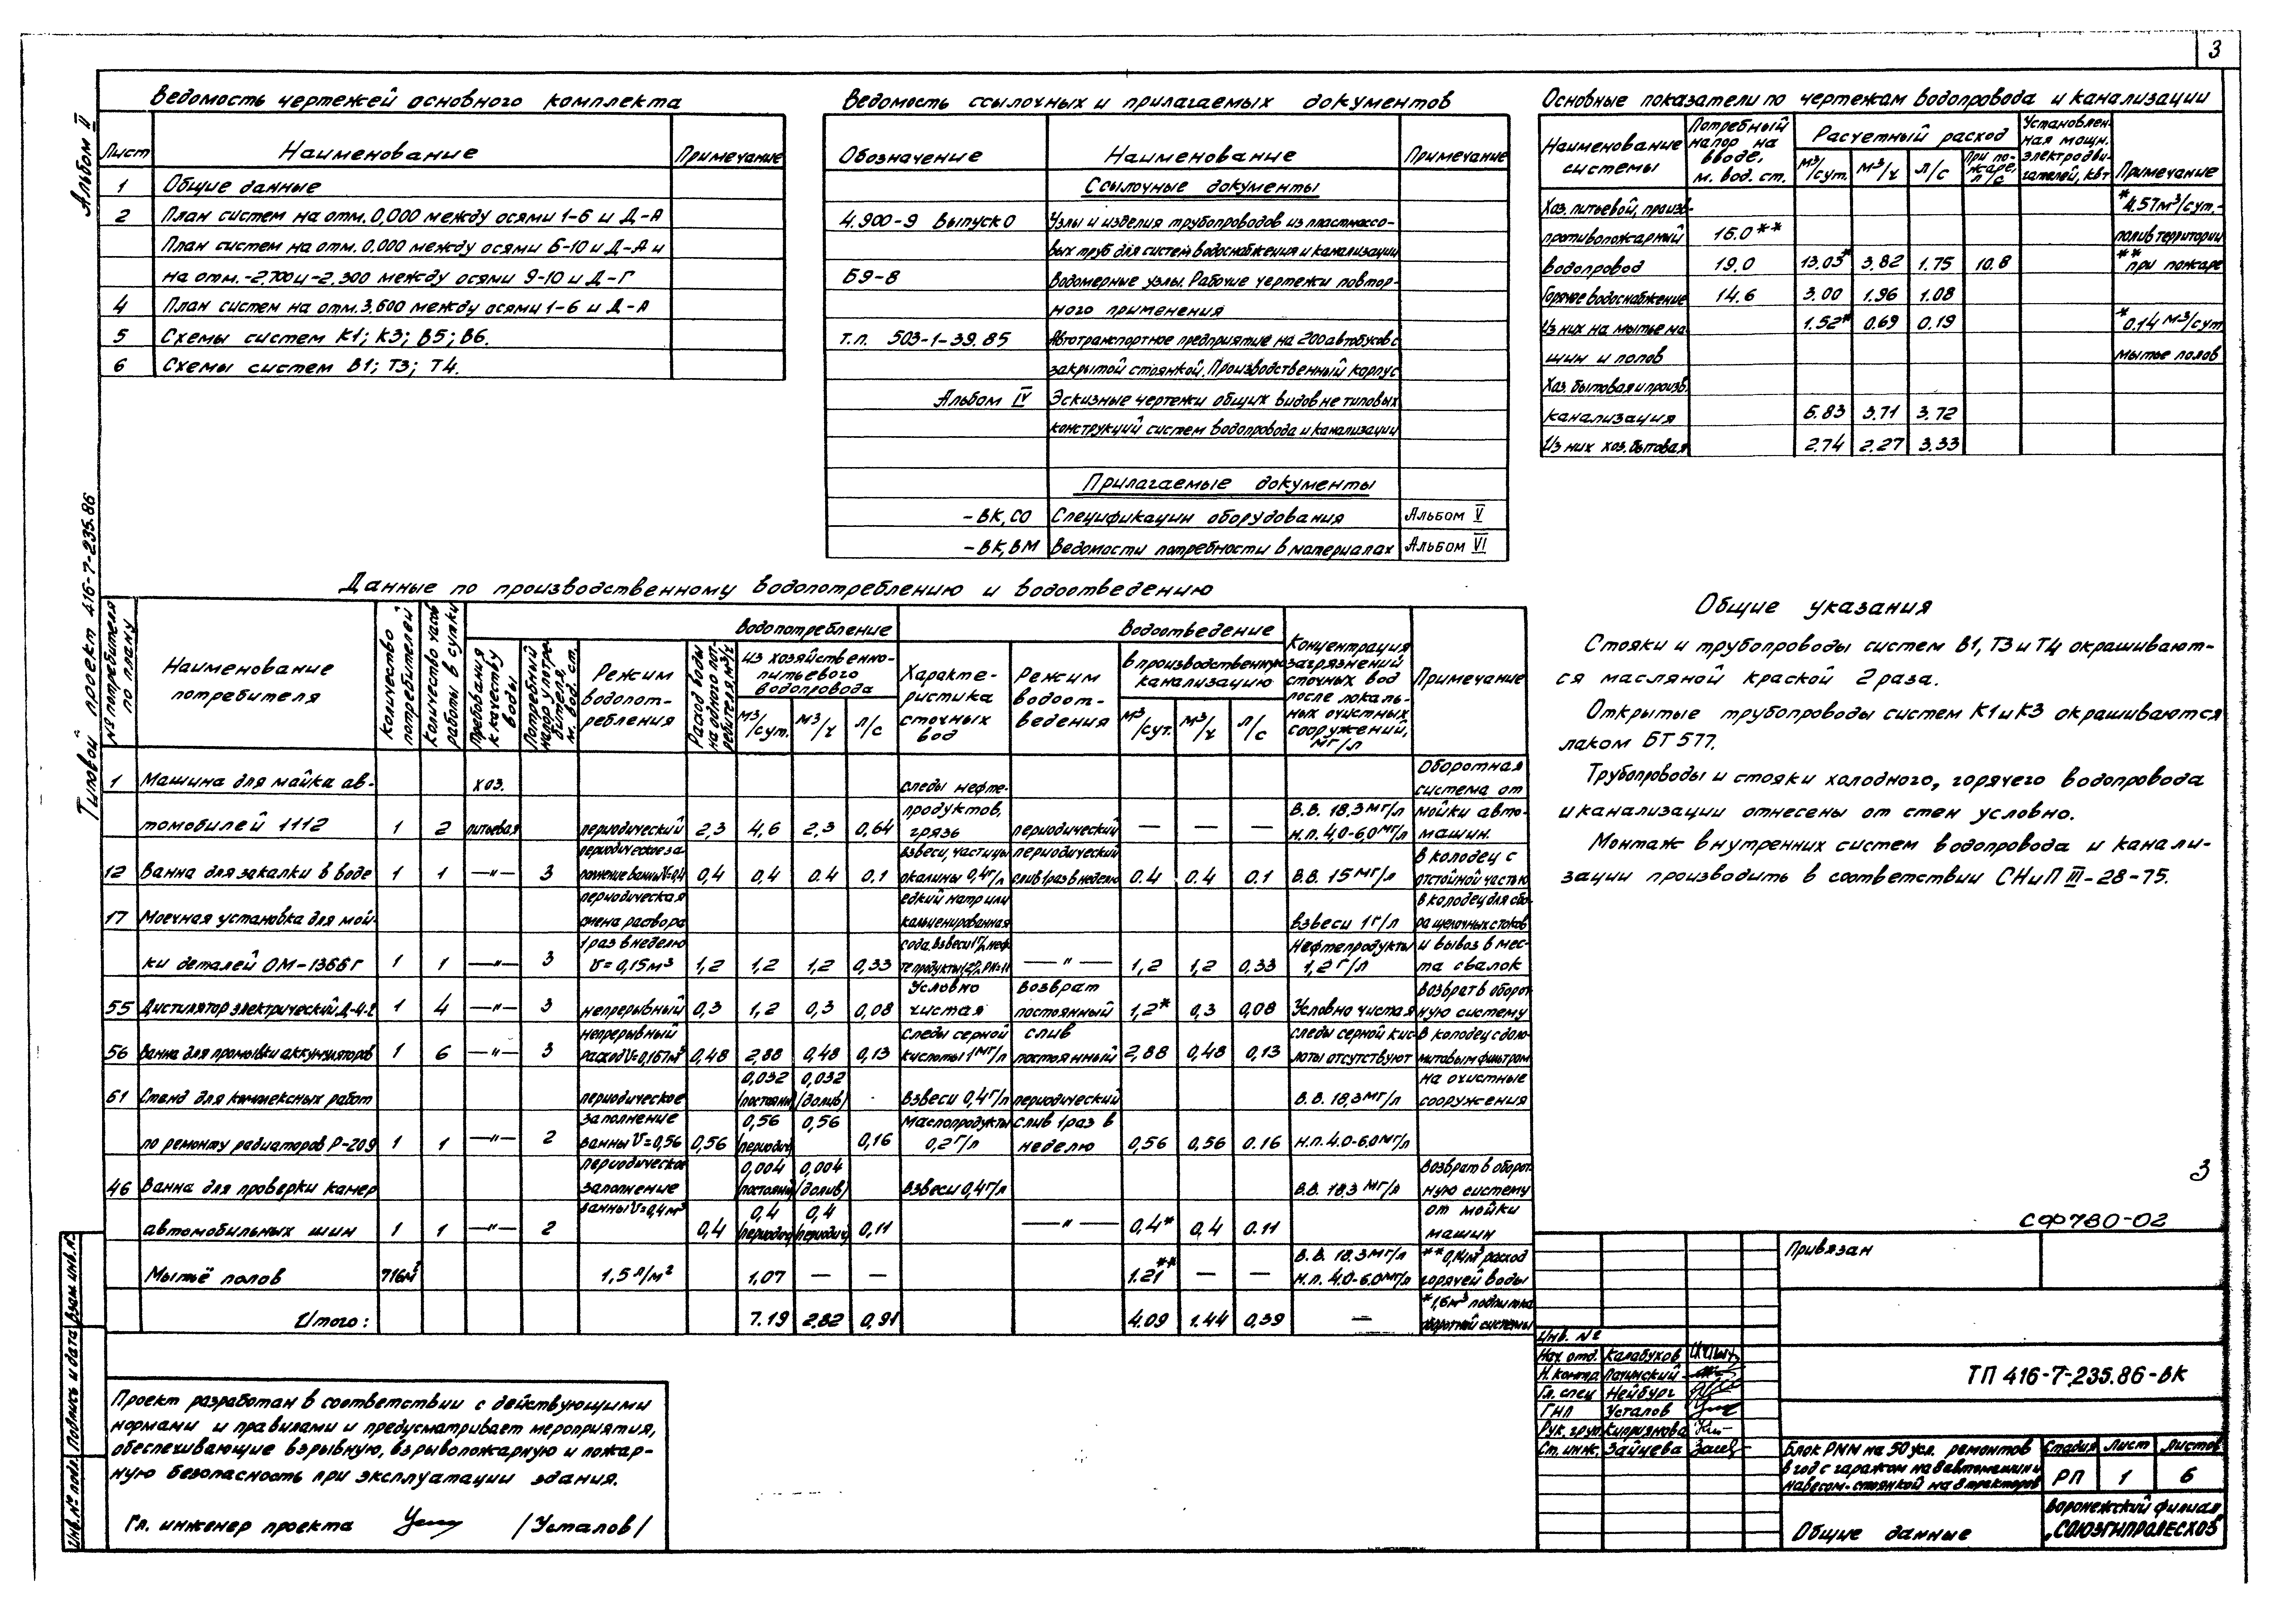 3
Альбом II
Типовой проект 416-7-235.86
Ведомость чертежей основного комплекта
Лист Наименование Примечание
1 Общие данные
2 План систем на отм. 0,000 между осями 1-6 и Д-А
План систем на отм. 0.000 между осями 6-10 и Д-А и
на отм. -2,700 и -2,300 между осями 9-10 и Д-Г
4 План систем на отм. 3.600 между осями 1-6 и Д-А
5 Схемы систем К1; К3; В5; В6.
6 Схемы систем В1; Т3; Т4.
Ведомость ссылочных и прилагаемых документов
Обозначение Наименование Примечание
Ссылочные документы
4.900-9 Выпуск 0 Узлы и изделия трубопроводов из пластмассо-
вых труб для систем водоснабжения и канализации
Б9-8 Водомерные узлы. Рабочие чертежи повтор-
ного применения
т.п. 503-1-39.85 Автотранспортное предприятие на 200 автобусов с
закрытой стоянкой. Производственный корпус
Альбом IV Эскизные чертежи общих видов не типовых
конструкций систем водопровода и канализации
Прилагаемые документы
-ВК,СО Спецификации оборудования Альбом V
-ВК,ВМ Ведомости потребности в материалах Альбом VI
Основные показатели по чертежам водопровода и канализации
Наименование системы Потребный напор на вводе, м. вод. ст. Расчетный расход м³/сут. м³/ч л/с При пожаре, л/с Установленная мощн. электродвигателей, квт Примечание
Хоз. питьевой, произв- *4.57 м³/сут.-
противопожарный 16.0** полив территории
водопровод 19.0 13.03* 3.82 1.75 10.8 **при пожаре
Горячее водоснабжение 14.6 3.00 1.96 1.08
Из них на мытье ма 1.52* 0.69 0.19 *0.14 м³/сут
шин и полов мытье полов
Хоз. бытовая и произв.
канализация 6.83 3.71 3.72
Из них хоз. бытовая 2.74 2.27 3.33
Данные по производственному водопотреблению и водоотведению
№ потребителя по плану
Наименование потребителя
Количество потребителей
Количество часов работы в сутки
Водопотребление
Требования к качеству воды
Потребный напор у потребителя, м. вод. ст.
Режим водопотребления
Расход воды на одного потребителя, м³/ч
Из хозяйственно-питьевого водопровода
м³/сут. м³/ч л/с
Водоотведение
Характеристика сточных вод
Режим водоотведения
в производственную канализацию
м³/сут. м³/ч л/с
Концентрация загрязнений сточных вод после локальных очистных сооружений, мг/л
Примечание
1 Машина для мойка ав- хоз. следы нефте- Оборотная система от
томобилей 1112 1 2 питьевая периодический 2,3 4,6 2,3 0,64 продуктов, грязь периодический — — — В.В. 18,3 мг/л Н.П. 4,0-6,0 мг/л мойки авто- машин.
12 Ванна для закалки в воде 1 1 —"— 3 периодическое за полнение ванны V=0,4 0,4 0,4 0.4 0,1 взвеси, частицы окалины 0,4 г/л периодический слив 1 раз в неделю 0.4 0.4 0.1 В.В. 15 мг/л в колодец с отстойной частью
17 Моечная установка для мой- периодическая смена раствора едкий натр или кальценированная взвеси 1 г/л в колодец для сбо- ра щелочных стоков
ки деталей ОМ-1366Г 1 1 —"— 3 1 раз в неделю V=0,15 м³ 1,2 1,2 1,2 0,33 —"— 1,2 1,2 0,33 Нефтепродукты 1,2 г/л и вывоз в мес- та свалок
55 Дистилятор электрический Д-4-2 1 4 —"— 3 непрерывный 0,3 1,2 0,3 0,08 Условно чистая возврат постоянный 1,2* 0,3 0,08 Условно чистая возврат в оборот ную систему
56 Ванна для промывки аккумуляторов 1 6 —"— 3 непрерывный расход V=0,167 м³ 0,48 2,88 0,48 0,13 Следы серной кислоты 1 мг/л слив постоянный 2,88 0,48 0,13 следы серной кис- лоты отсутствуют в колодец с доло- митовым фильтром
61 Стенд для комплексных работ периодическое 0,032 /постоян/ 0,032 /долив/ Взвеси 0,4 г/л периодический В.В. 18,3 мг/л на очистные сооружения
по ремонту радиаторов Р-209 1 1 —"— 2 заполнение ванны V=0,56 0,56 0,56 /периодич/ 0,56 0,16 Маслопродукты 0,2 г/л слив 1 раз в неделю 0,56 0,56 0.16 Н.П. 4.0-6.0 мг/л
46 Ванна для проверки камер периодическое заполнение 0,004 /постоян/ 0,004 /долив/ Взвеси 0,4 г/л В.В. 18.3 мг/л возврат в оборот ную систему
автомобильных шин 1 1 —"— 2 ванны V=0,4 м³ 0,4 0,4 /периодич/ 0,4 /периодич/ 0,11 —"— 0,4* 0,4 0.11 от мойки машин
Мытьё полов 716 м² 1,5 л/м² 1,07 — — 1.21** — — В.В. 18.3 мг/л Н.П. 4.0-6.0 мг/л **0,14 м³ расход горячей воды
Итого: 7.19 2,82 0,91 4.09 1.44 0,39 — *1,6 м³ подпитка оборотной системы
Общие указания
Стояки и трубопроводы систем В1, Т3 и Т4 окрашивают-
ся масляной краской 2 раза.
Открытые трубопроводы систем К1 и К3 окрашиваются
лаком БТ 577.
Трубопроводы и стояки холодного, горячего водопровода
и канализации отнесены от стен условно.
Монтаж внутренних систем водопровода и канали-
зации производить в соответствии СНиП III-28-75.
3
СФ780-02
Привязан
Инв. №
Нач. отд. Калабухов
Н. контр. Пачинский
Гл. спец Нейбург
ГИП Усталов
Рук. груп. Киприянова
Ст. инж. Зайцева
ТП 416-7-235.86-ВК
Блок РММ на 50 усл. ремонтов
в год с гаражом на 8 автомашин и
навесом-стоянкой на 8 тракторов
Стадия Лист Листов
РП 1 6
Общие данные
Воронежский филиал
"СОЮЗГИПРОЛЕСХОЗ"
Проект разработан в соответствии с действующими
нормами и правилами и предусматривает мероприятия,
обеспечивающие взрывную, взрывопожарную и пожар-
ную безопасность при эксплуатации здания.
Гл. инженер проекта /Усталов/
Инв. № подл. Подпись и дата Взам. инв. №